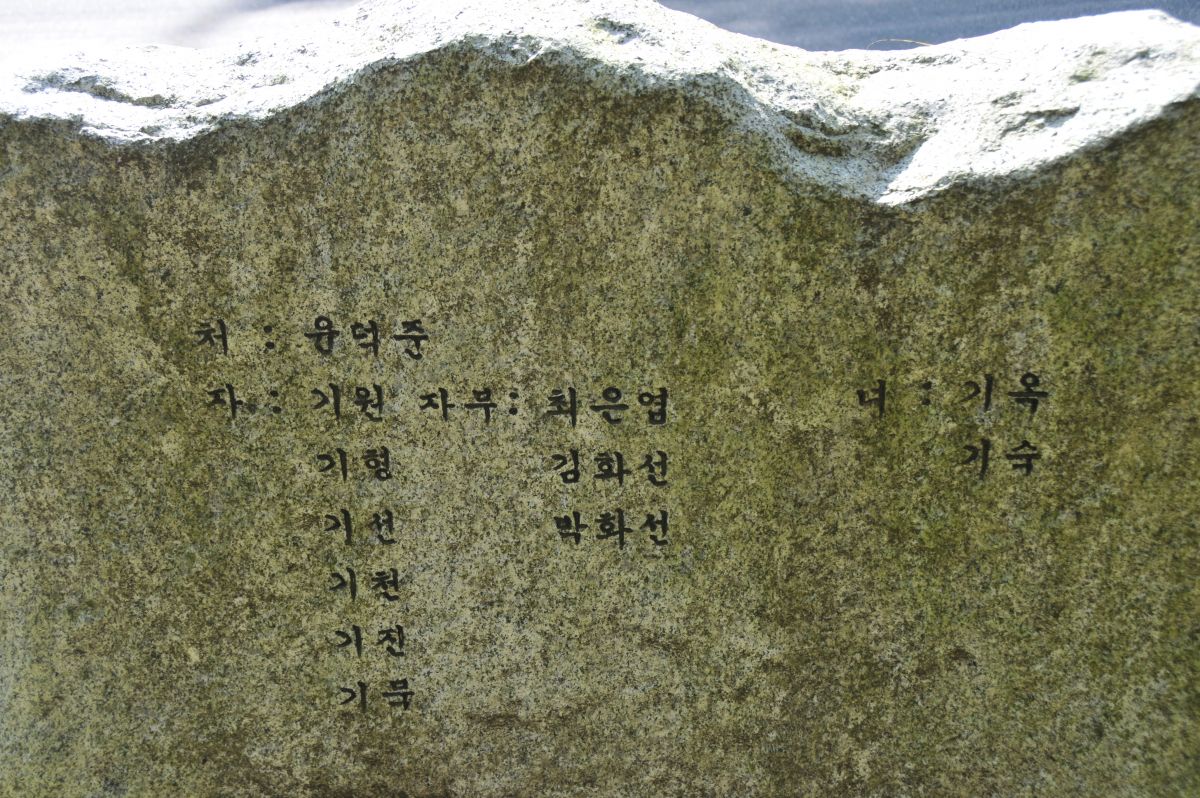 처 : 윤덕준
자 : 기원 자부 : 최은엽 녀 : 기옥
기형 김화선 기숙
기선 박화선
기천
기진
기묵